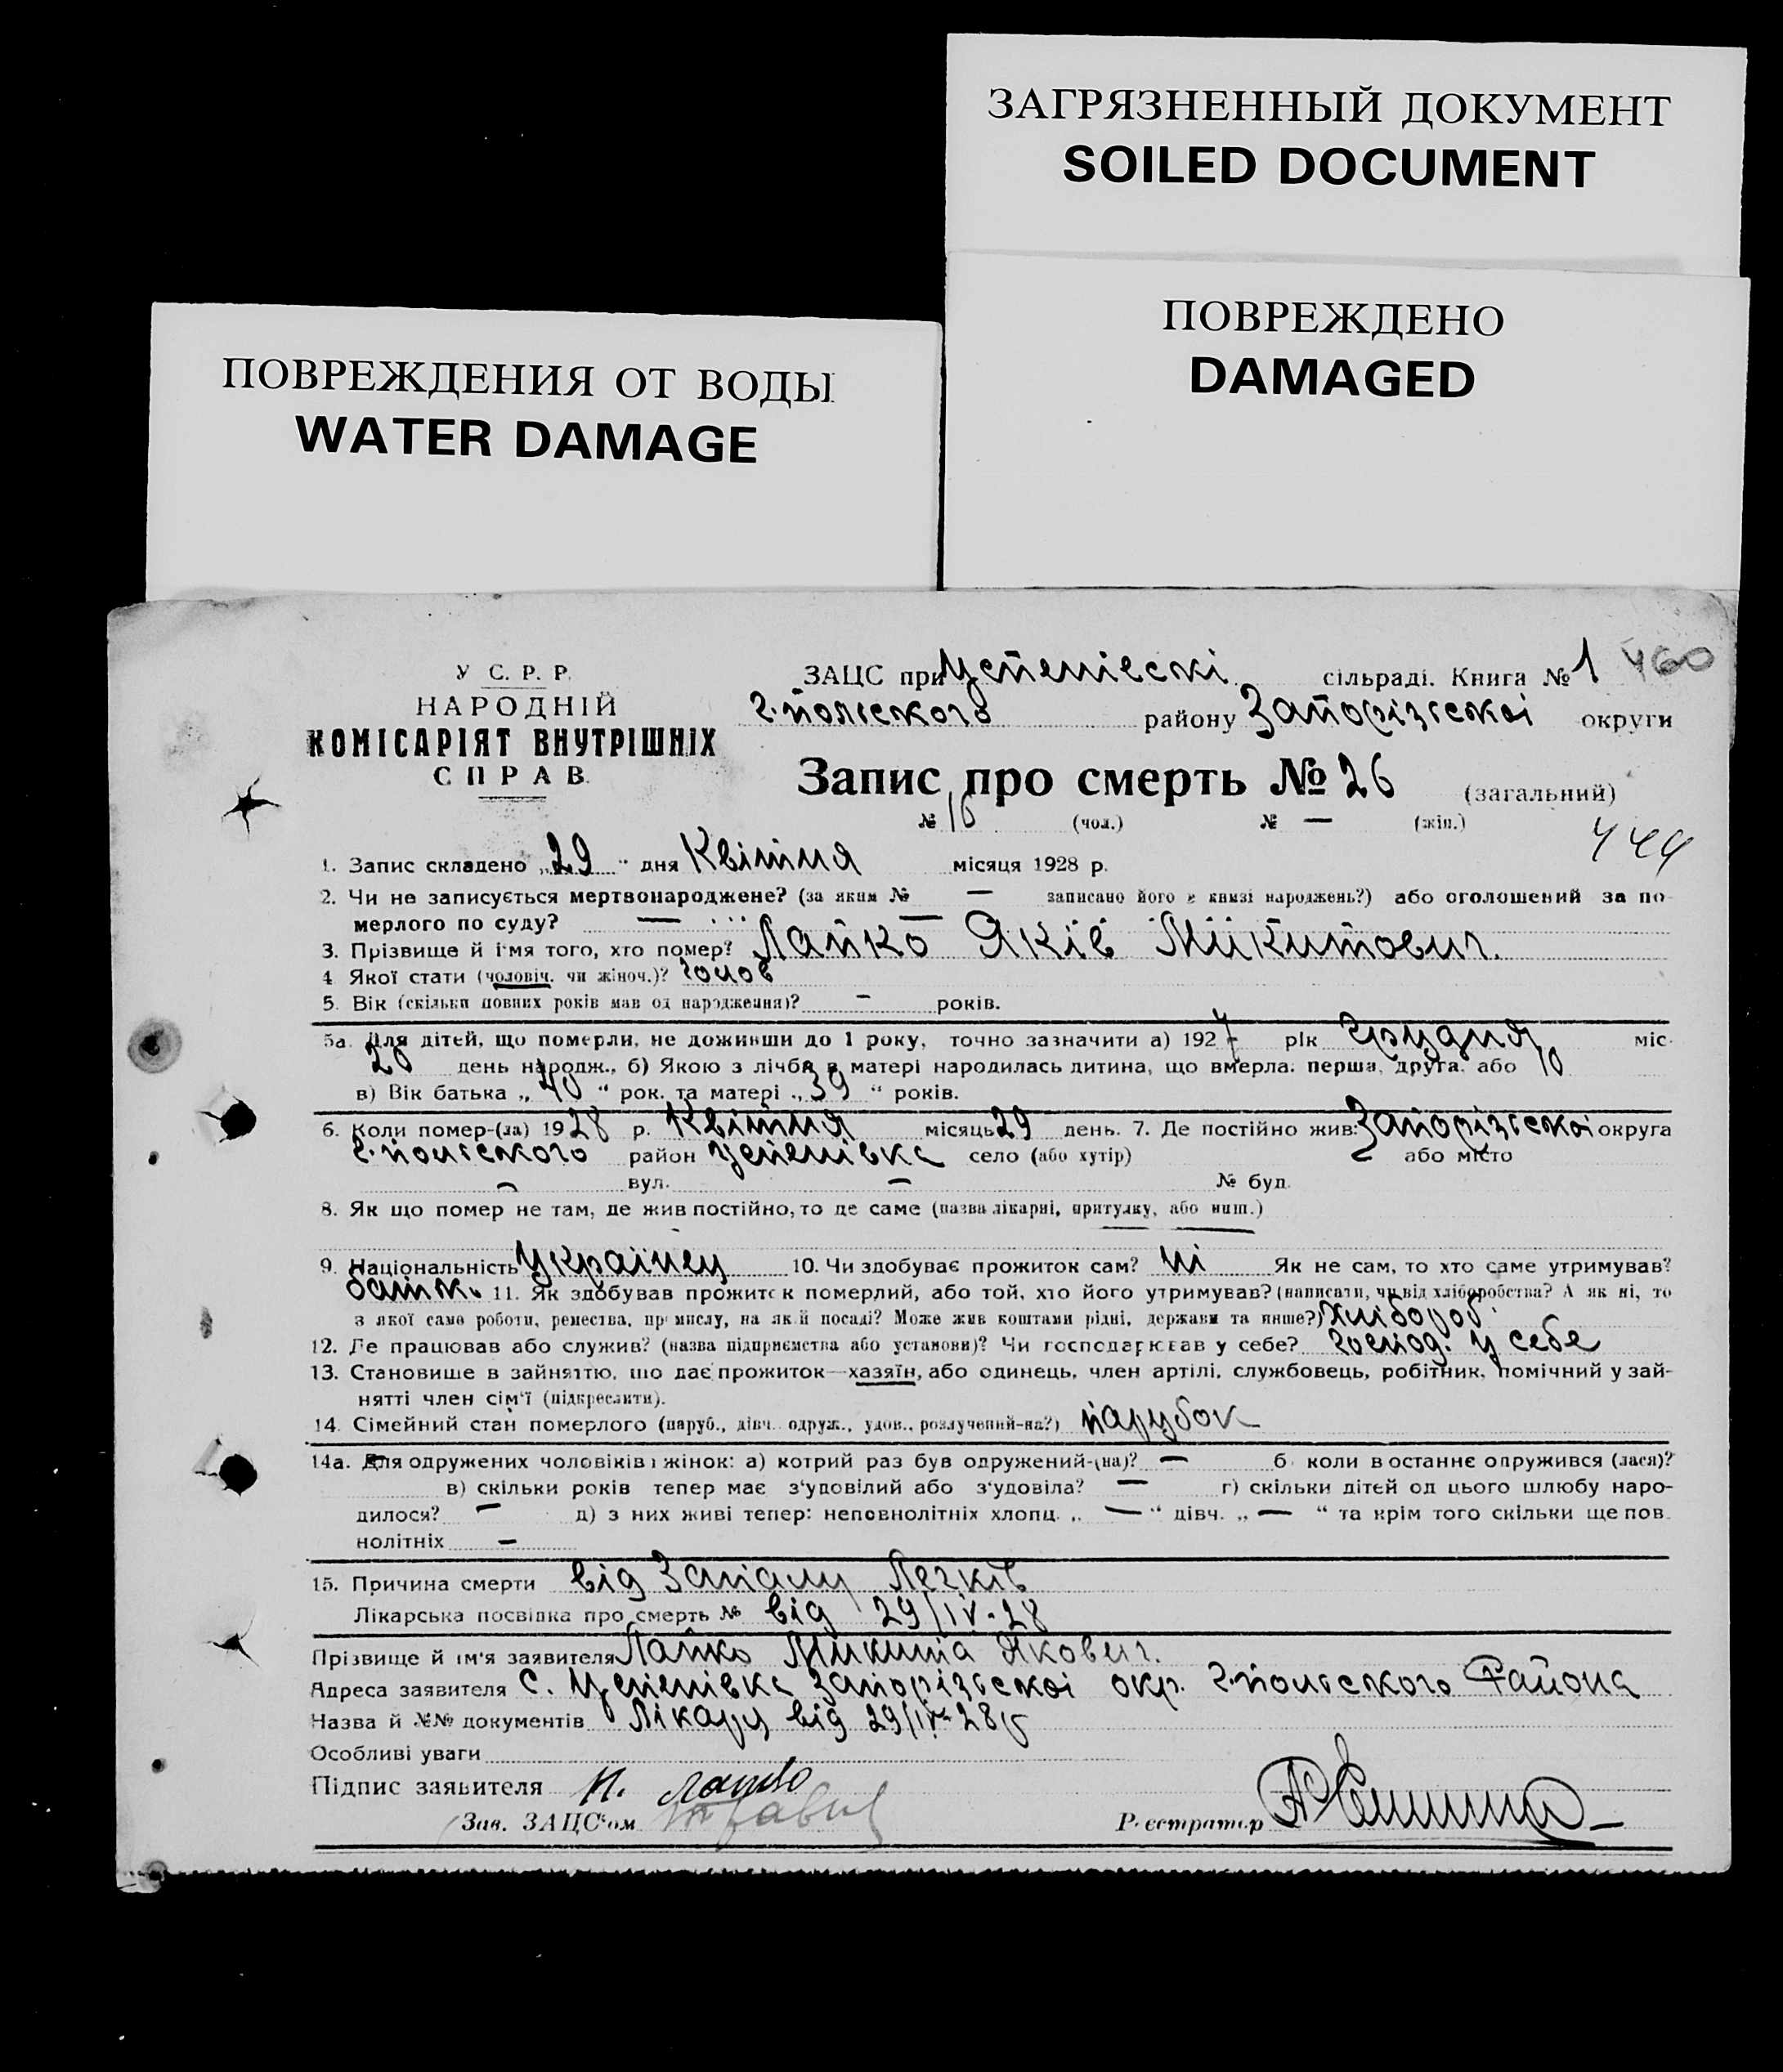 ЗАГРЯЗНЕННЫЙ ДОКУМЕНТ
SOILED DOCUMENT
ПОВРЕЖДЕНО
DAMAGED
ПОВРЕЖДЕНИЯ ОТ ВОДЫ
WATER DAMAGE
У С. Р. Р.
НАРОДНІЙ
КОМІСАРІЯТ ВНУТРІШНІХ
СПРАВ.
ЗАЦС при Успенівскі сільраді. Книга № 1 460
г.польского району Запорізськоі округи
Запис про смерть № 26 (загальний)
№ 16 (чол.) № — (жін.)
444
1. Запис складено „29“ дня Квітня місяця 1928 р.
2. Чи не записується мертвонароджене? (за яким № — записано його в книзі народжень?) або оголошений за по-
мерлого по суду? —
3. Прізвище й ім'я того, хто помер? Лапко Яків Микитович.
4 Якої стати (чоловіч. чи жіноч.)? чолов
5. Вік (скільки повних років мав од народження)? - років.
5а. Для дітей, що померли, не доживши до 1 року, точно зазначити а) 1927 рік Грудня міс.
20 день народж., б) Якою з лічби в матері народилась дитина, що вмерла: перша, друга, або 10
в) Вік батька „40“ рок. та матері „39“ років.
6. Коли помер-(ла) 1928 р. Квітня місяць 29 день. 7. Де постійно жив: Запорізськоі округа
г.польского район Успенівка село (або хутір) або місто
- вул. - № буд.
8. Як що помер не там, де жив постійно, то де саме (назва лікарні, притулку, або инш.)
—
9. Національність Украінец 10. Чи здобуває прожиток сам? ні Як не сам, то хто саме утримував?
батьк. 11. Як здобував прожиток померлий, або той, хто його утримував? (написати, чи від хліборобства? А як ні, то
з якої саме роботи, ремества, промислу, на якій посаді? Може жив коштами рідні, держави та инше?) Хлібороб.
12. Де працював або служив? (назва підприємства або установи)? Чи господарював у себе? господ. у себе
13. Становище в зайняттю, що дає прожиток—хазяїн, або одинець, член артілі, службовець, робітник, помічний у зай-
нятті член сім'ї (підкреслити).
14. Сімейний стан померлого (паруб., дівч. одруж., удов., розлучений-на?) парубок
14а. Для одружених чоловіків і жінок: а) котрий раз був одружений-(на)? — б) коли в останнє одружився (лася)?
в) скільки років тепер має з'удовілий або з'удовіла? — г) скільки дітей од цього шлюбу наро-
дилося? — д) з них живі тепер: неповнолітніх хлопц. „—“ дівч. „—“ та крім того скільки ще пов-
нолітніх -
15. Причина смерти від Запалу Легкив
Лікарська посвідка про смерть № від 29/IV-28
Прізвище й ім'я заявителя Лапко Микита Якович.
Адреса заявителя С. Успенівка Запорізськоі окр. г.польского Района
Назва й №№ документів Лікару від 29/IV-28 р
Особливі уваги
Підпис заявителя Н. Лапко
Зав. ЗАЦС'ом
Реєстратор